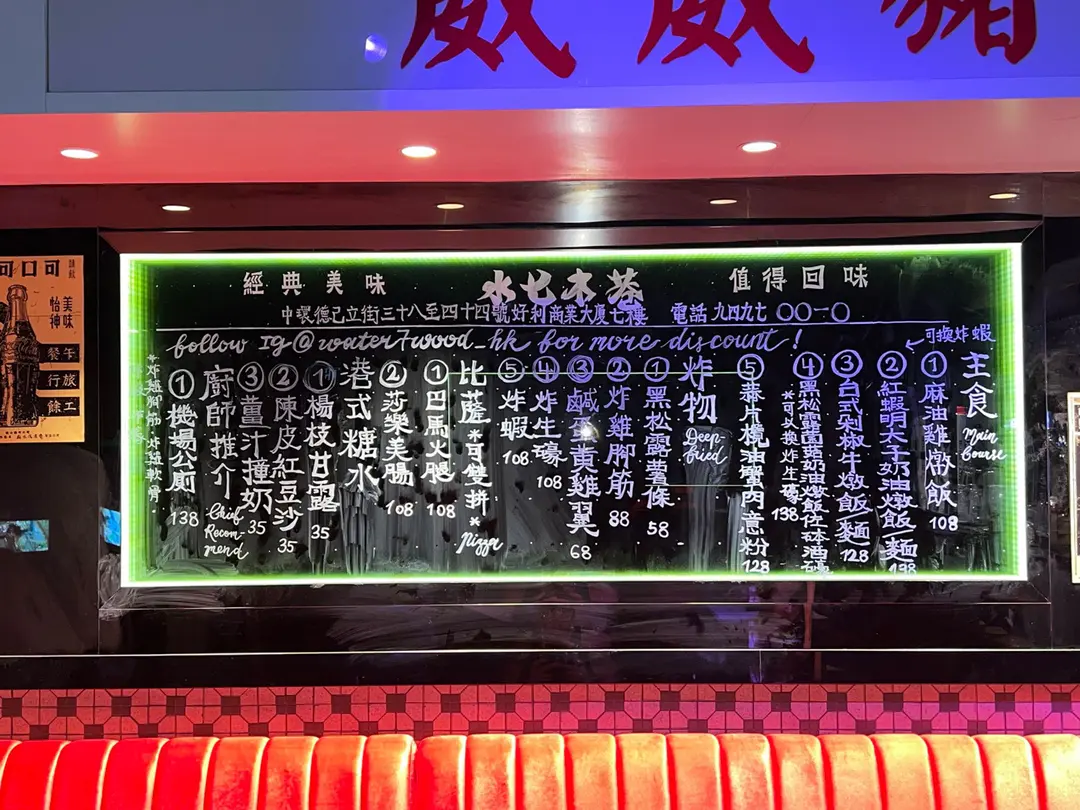 威威豬
經典美味
水七木茶
值得回味
中環德己立街三十八至四十四號好利商業大廈七樓 電話九四九七〇〇一〇
follow IG@water7wood_hk for more discount!
主食 Main Course
①麻油雞燉飯 108
可換炸蝦
②紅蝦明太子奶油燉飯/麵 198
③台式剁椒牛燉飯/麵 128
④黑松露菌菇奶油燉飯佐砵酒蠔
*可以換炸生蠔 138
⑤蒜片欖油蟹肉意粉 128
炸物 Deep-fried
①黑松露薯條 58
②炸雞腳筋 88
③鹹蛋黃雞翼 68
④炸生蠔 108
⑤炸蝦 108
比薩 *可雙拼* Pizza
①巴馬火腿 108
②莎樂美腸 108
港式糖水
①楊枝甘露 35
②陳皮紅豆沙 35
③薑汁撞奶 35
廚師推介 Chief Recommend
①機場公廁 138
*炸雞腳筋,炸雞軟骨
可口可
美味
怡神
午餐
旅行
工餘